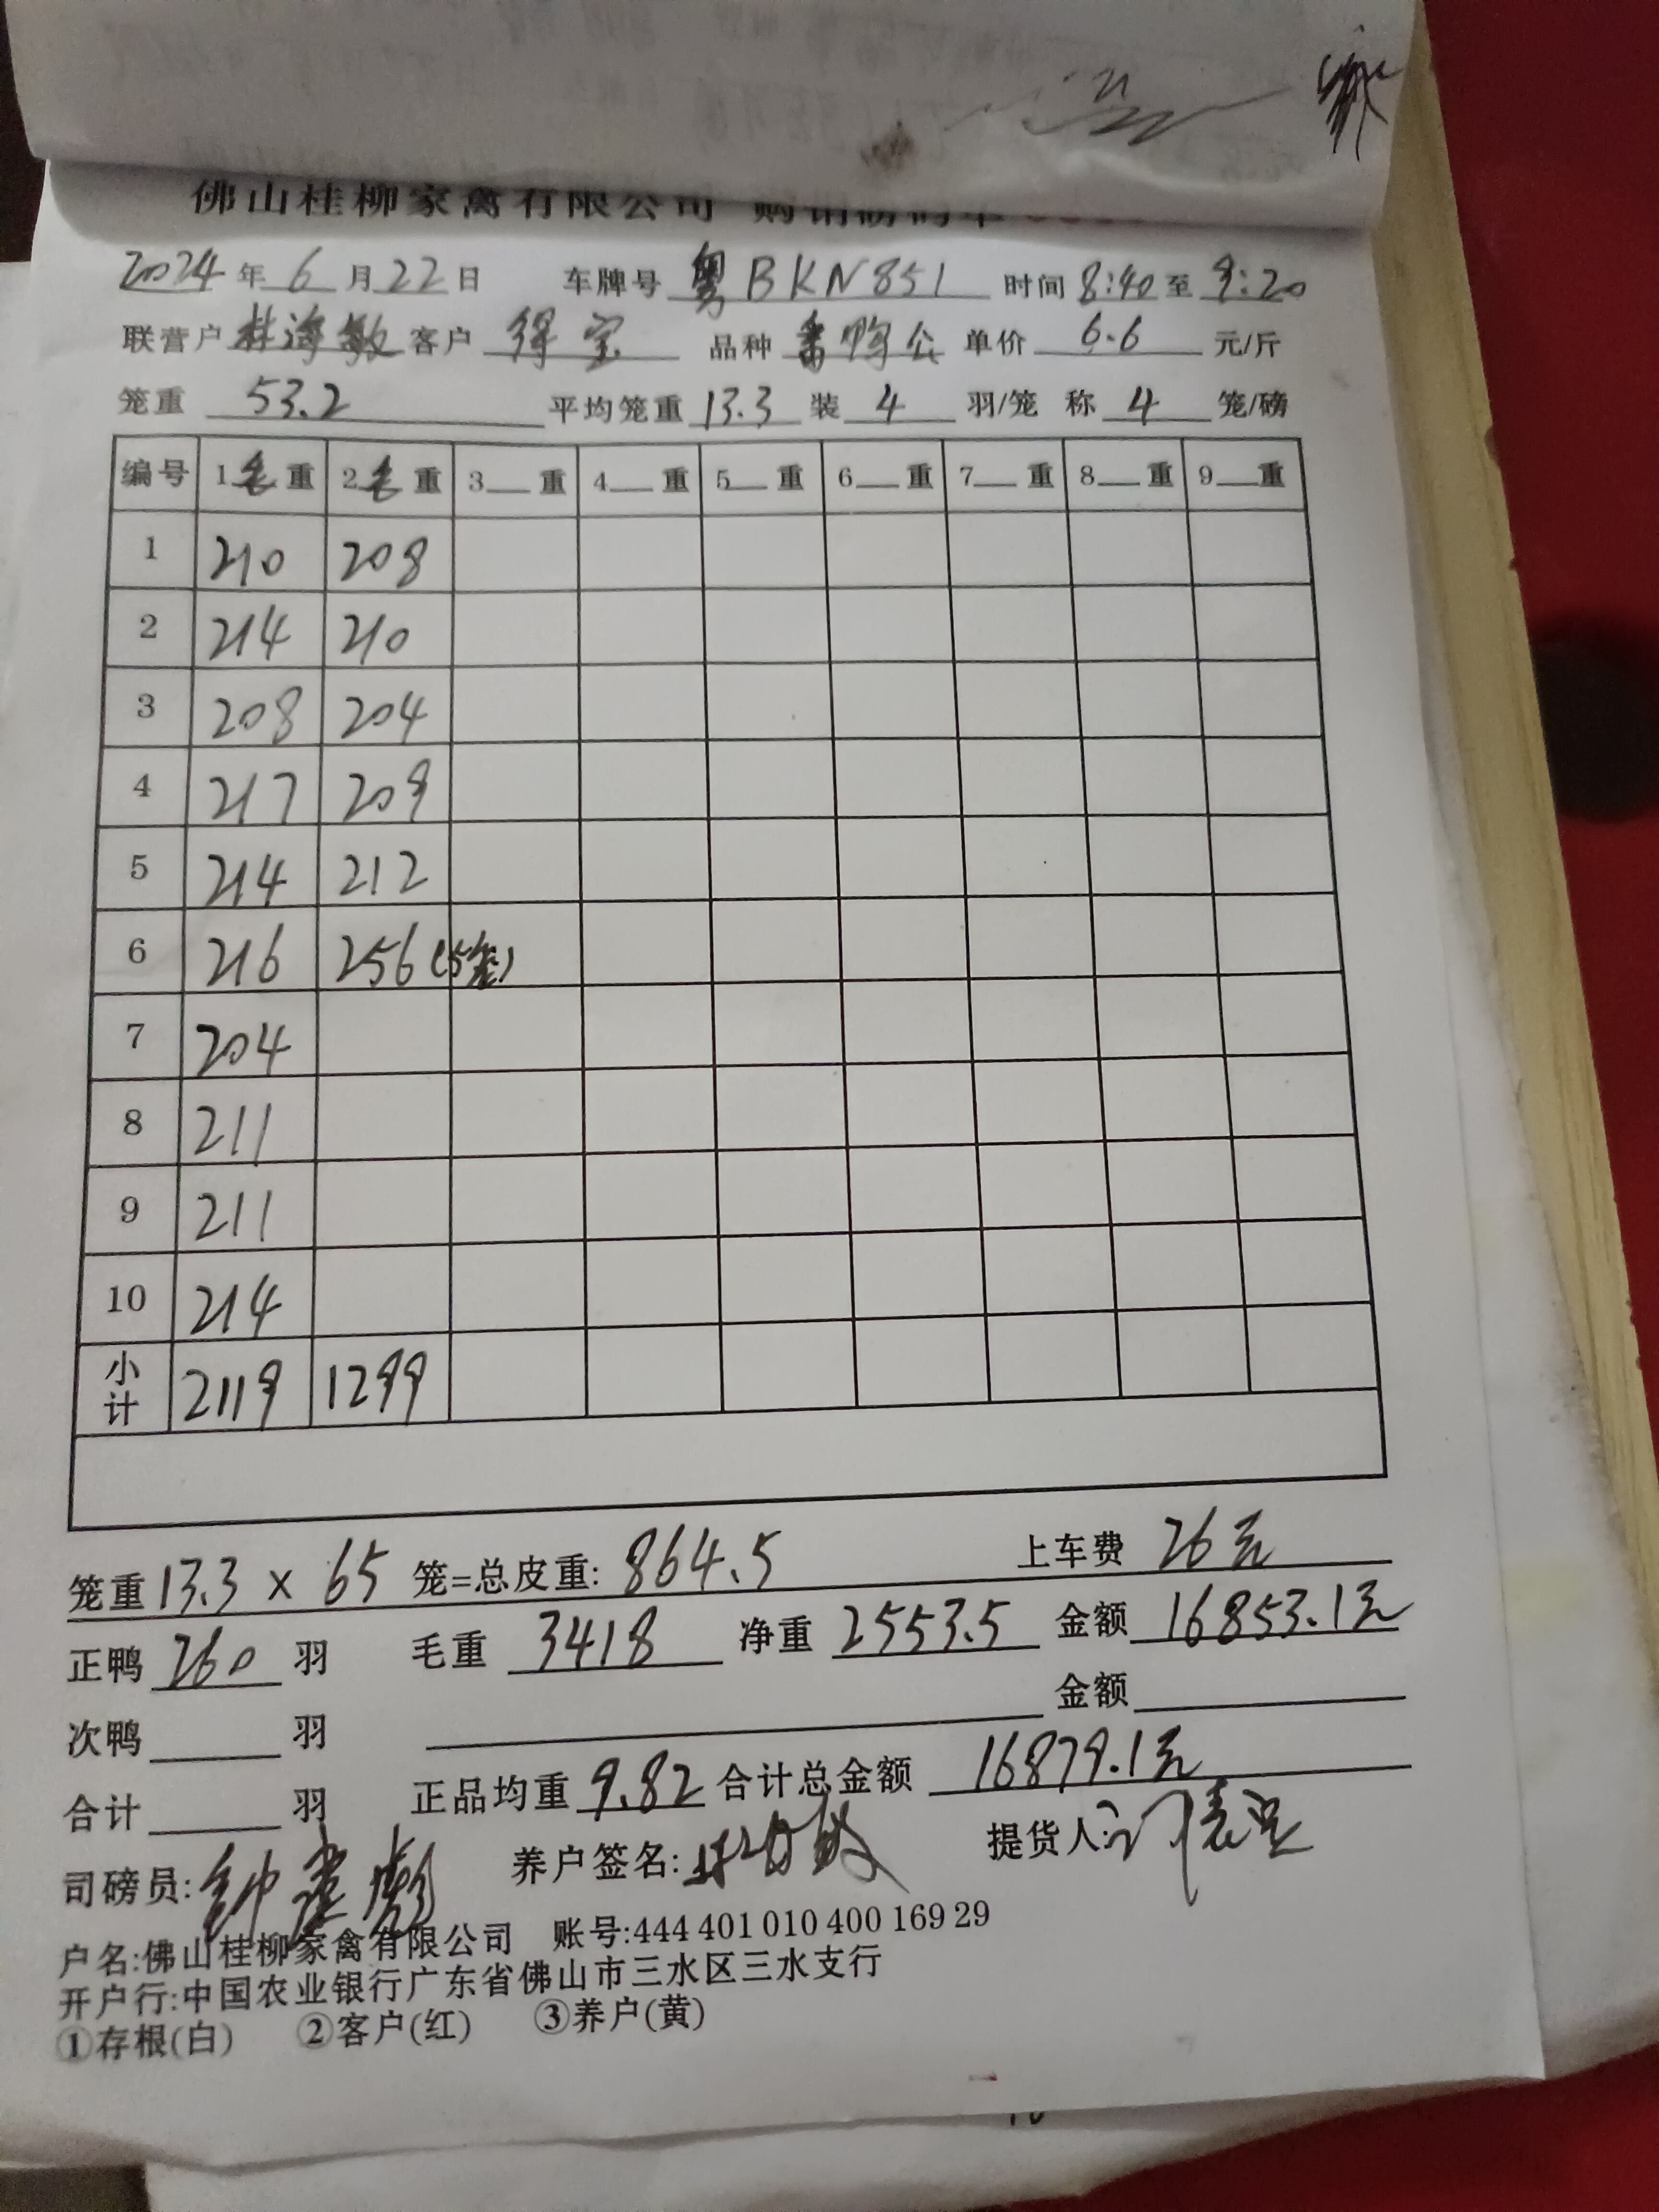 佛山桂柳家禽有限公司 购销磅码单
2024年6月22日 车牌号 粤BKN851 时间 8:40 至 9:20
联营户 林海敏 客户 得宝 品种 番鸭公 单价 6.6 元/斤
笼重 53.2 平均笼重 13.3 装 4 羽/笼 称 4 笼/磅
编号 1毛重 2毛重 3__重 4__重 5__重 6__重 7__重 8__重 9__重
1 210 208
2 214 210
3 208 204
4 217 209
5 214 212
6 216 256(5笼)
7 204
8 211
9 211
10 214
小计 2119 1299
笼重 13.3 × 65 笼=总皮重: 864.5 上车费 26元
正鸭 260 羽 毛重 3418 净重 2553.5 金额 16853.1元
次鸭 羽 金额
合计 羽 正品均重 9.82 合计总金额 16879.1元
司磅员: 养户签名: 提货人:
户名:佛山桂柳家禽有限公司 账号:444 401 010 400 169 29
开户行:中国农业银行广东省佛山市三水区三水支行
①存根(白) ②客户(红) ③养户(黄)